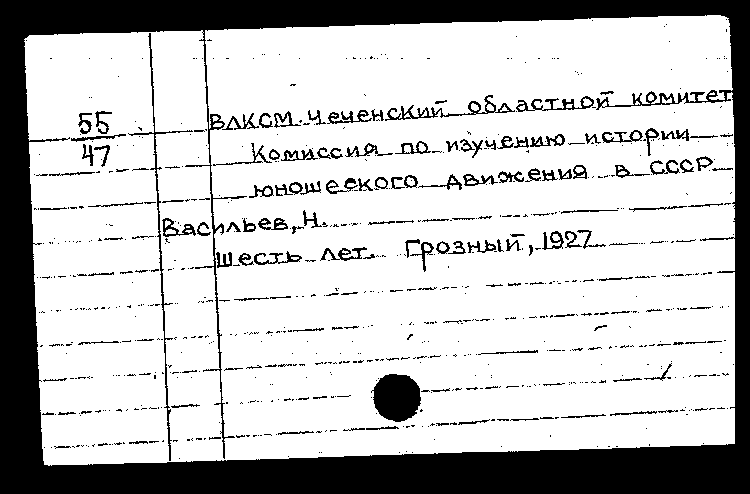 55
47
ВЛКСМ. Чеченский областной комитет
Комиссия по изучению истории
юношеского движения в СССР
Васильев, Н.
Шесть лет. Грозный, 1927